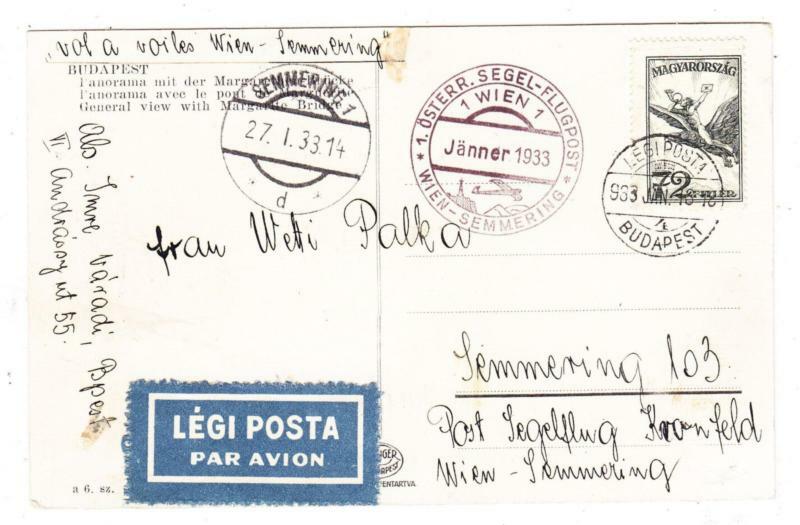 „vol a voiles Wien-Semmering"
BUDAPEST
Panorama mit der Margarethenbrücke
Panorama avec le pont de Marguerite
General view with Margarite Bridge
SEMMERING 1
27. I. 33.14
d
* 1. ÖSTERR. SEGEL-FLUGPOST *
1 WIEN 1
Jänner 1933
WIEN-SEMMERING
MAGYARORSZÁG
LÉGI POSTA
933 JAN
BUDAPEST
Frau Wetti Palka
Semmering 103.
Post Segelflug Kronfeld
Wien-Semmering
Abs. Imre Váradi, Bpest
VI. Andrássy ut 55.
LÉGI POSTA
PAR AVION
a 6. sz.